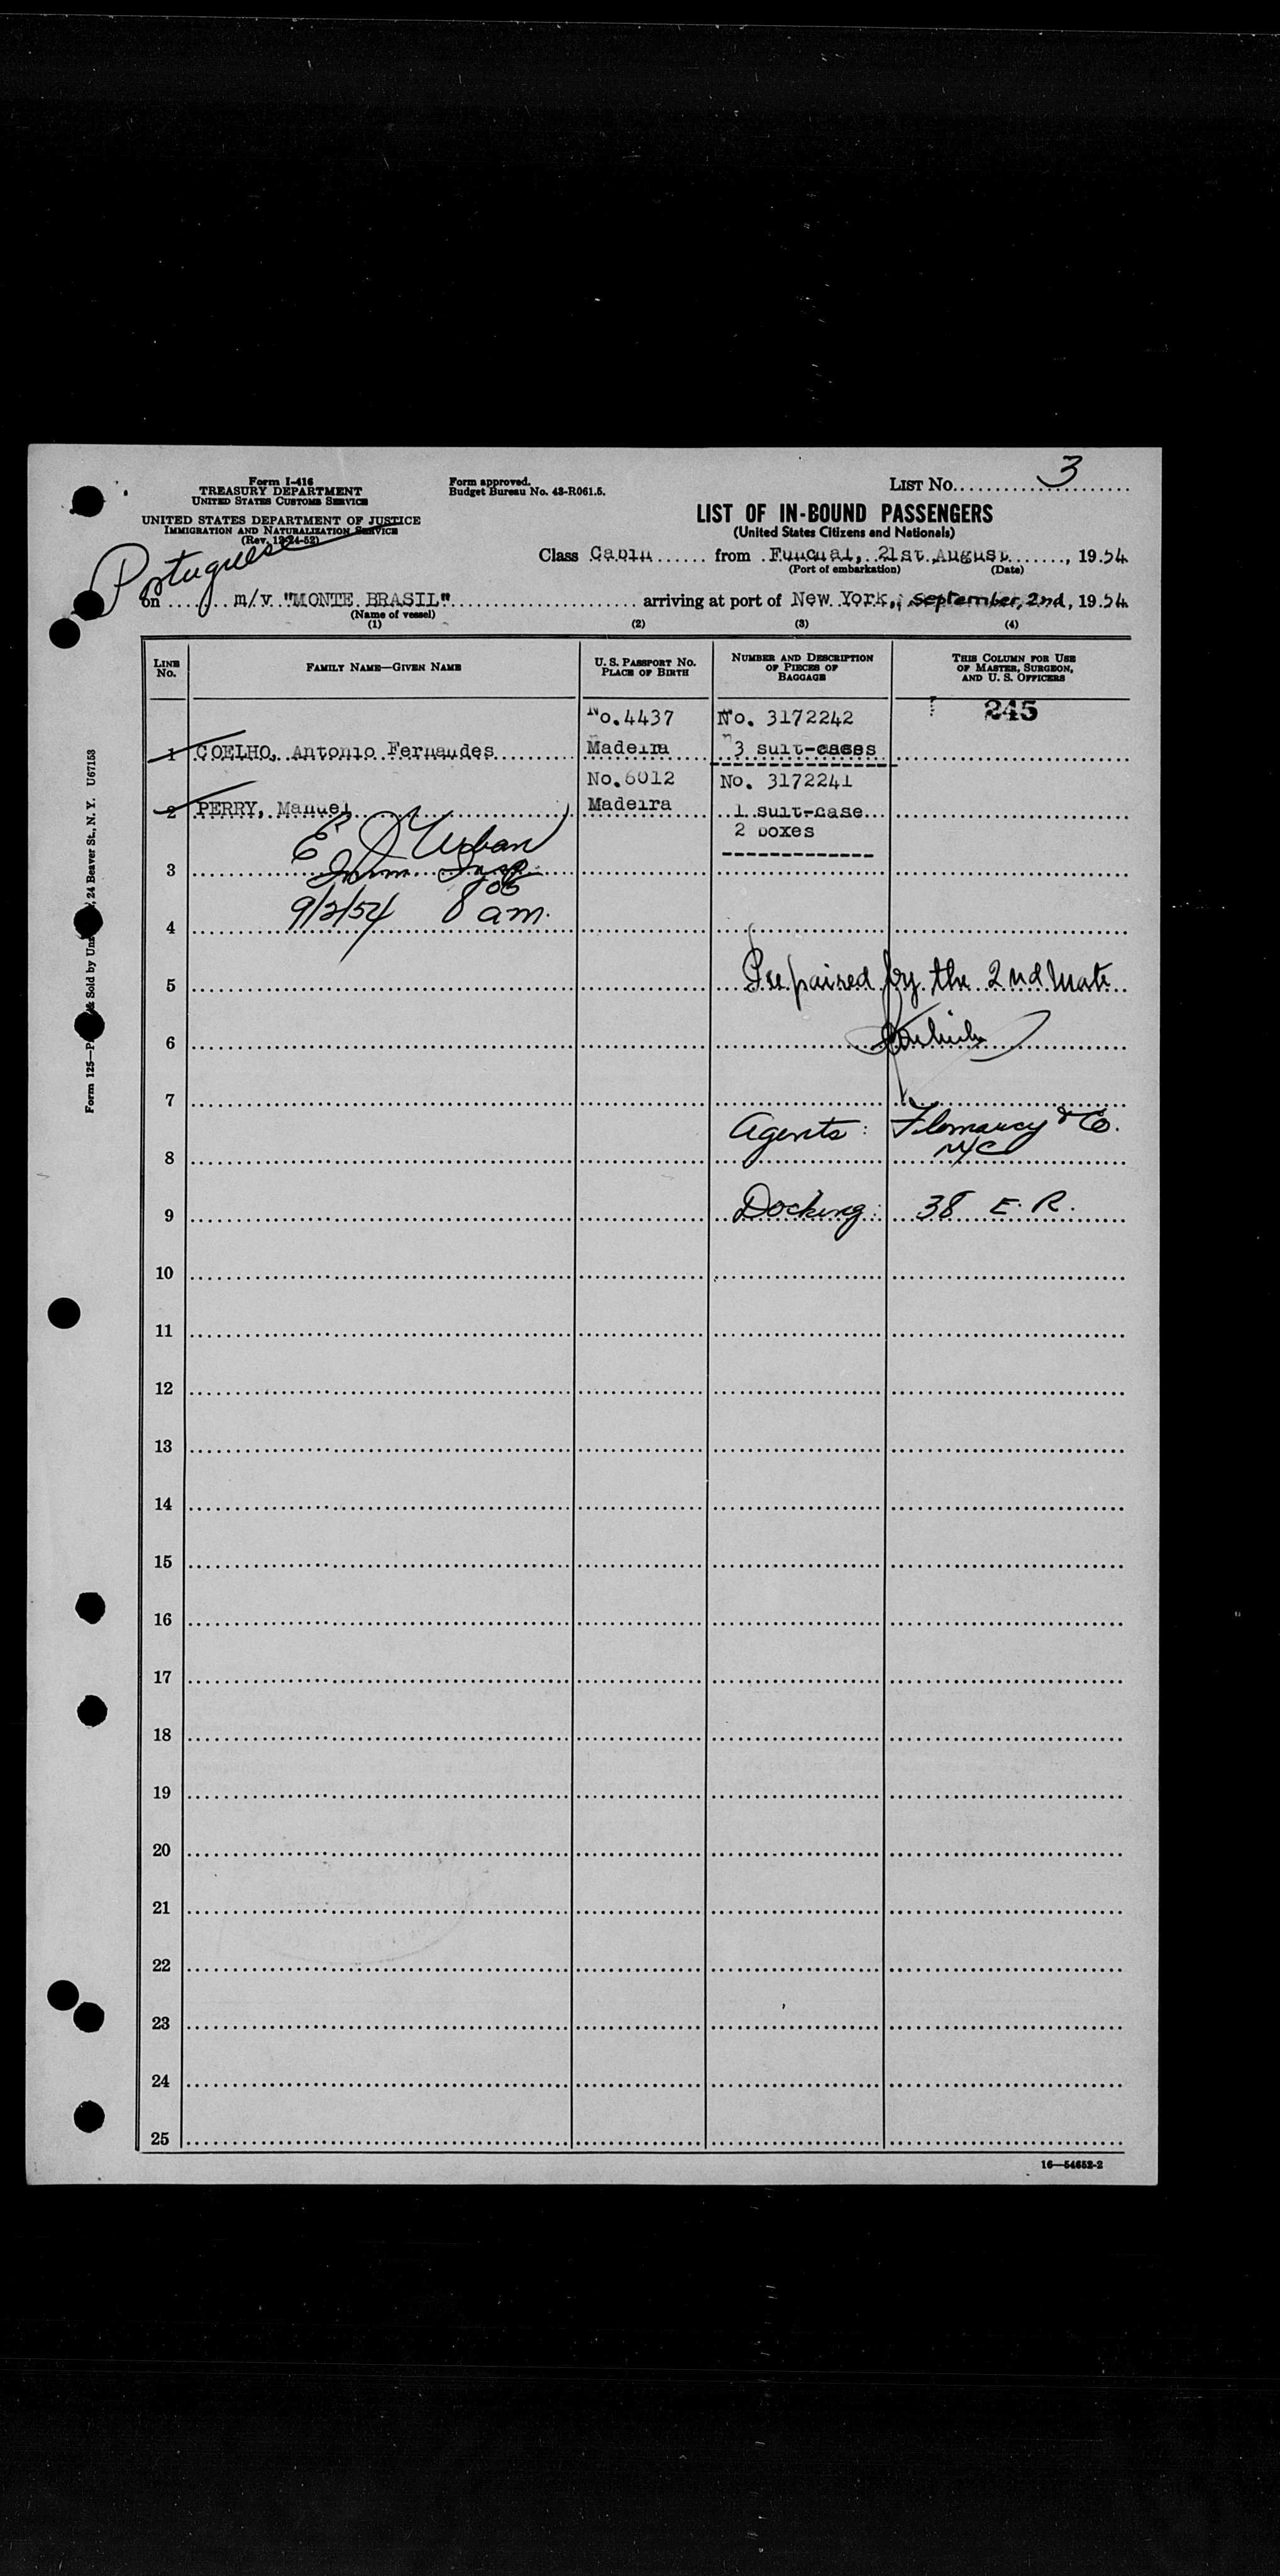 3
Form I-416
TREASURY DEPARTMENT
UNITED STATES CUSTOMS SERVICE
Form approved.
Budget Bureau No. 43-R061.5.
LIST No.
UNITED STATES DEPARTMENT OF JUSTICE
IMMIGRATION AND NATURALIZATION SERVICE
(Rev. 12-24-52)
LIST OF IN-BOUND PASSENGERS
(United States Citizens and Nationals)
Portuguese
Class Cabin from Funchal, 21st August, 1954
(Port of embarkation) (Date)
on m/v "MONTE BRASIL" arriving at port of New York, September, 2nd, 1954
(Name of vessel)
(1) (2) (3) (4)
LINE No. FAMILY NAME—GIVEN NAME U. S. PASSPORT NO. PLACE OF BIRTH NUMBER AND DESCRIPTION OF PIECES OF BAGGAGE THIS COLUMN FOR USE OF MASTER, SURGEON, AND U. S. OFFICERS
No.4437 No. 3172242 245
1 COELHO, Antonio Fernandes Madeira 3 suit-cases
No.6012 No. 3172241
2 PERRY, Manuel Madeira 1 suit-case
2 boxes
E Urban
3 Imm. Insp
9/2/54 8 05 am.
4
5 Prepaired by the 2nd Mate
6
7
Agents: & Co.
8 NYC
9 Docking: 38 E. R.
10
11
12
13
14
15
16
17
18
19
20
21
22
23
24
25
16—54652-2
Form 125— & Sold by 24 Beaver St., N. Y. U67153